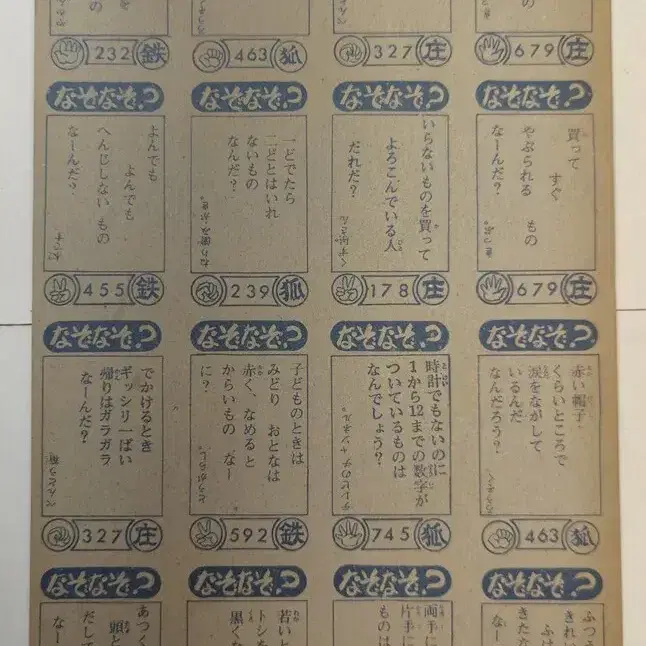 232 鉄
463 狐
327 庄
679 庄
なぞなぞ?
なぞなぞ?
なぞなぞ?
なぞなぞ?
よんでも
よんでも
へんじしない もの
なーんだ?
455 鉄
一どでたら
二どとはいれ
ないもの
なんだ?
ねり歯みがき。
239 狐
いらないものを買って
よろこんでいる人
だれだ?
くず屋さん
178 庄
買って
すぐ
やぶられる もの
なーんだ?
きっぷ。
679 庄
なぞなぞ?
なぞなぞ?
なぞなぞ?
なぞなぞ?
でかけるとき
ギッシリ一ぱい
帰りはガラガラ
なーんだ?
べんとう箱
327 庄
子どものときは
みどり おとなは
赤く、なめると
からいもの なー
に?
とうがらし。
592 鉄
時計でもないのに
1から12までの数字が
ついているものは
なんでしょう?
テレビのチャンネル。
745 狐
赤い帽子
くらいところで
涙をながして
いるんだ
なんだろう?
ろうそく
463 狐
なぞなぞ?
なぞなぞ?
なぞなぞ?
なぞなぞ?
あつく
頭と
だして
なー
若いと
トシを
黒くな
両手に
片手に
ものは
ふつう
きれい
なー